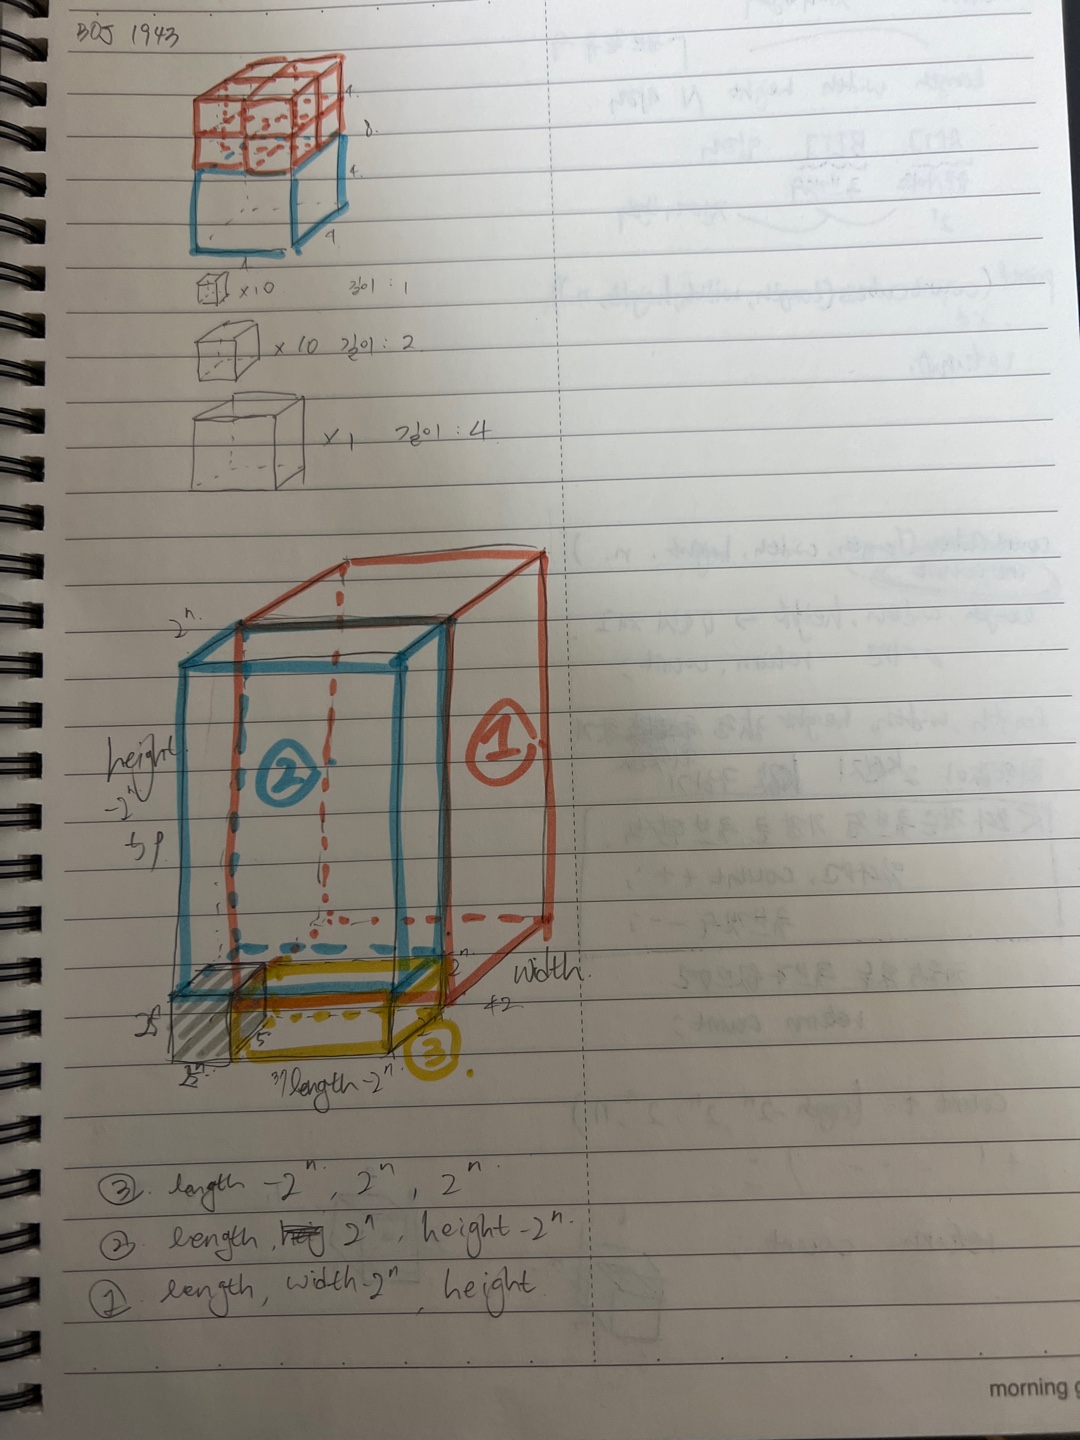 BOJ 1943
4.
8.
4.
4
4
×10 길이 : 1
×10 길이 : 2
×1 길이 : 4
2ⁿ
① 
②
height
-2ⁿ
2ⁿ
width
42
5
③
2ⁿ
37 length-2ⁿ
③. length -2ⁿ, 2ⁿ, 2ⁿ.
② length, 2ⁿ, height-2ⁿ.
① length, width-2ⁿ, height
morning g